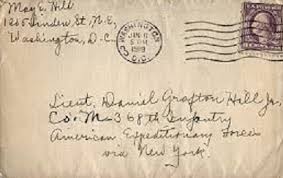 May E. Hill
1205 Linden St. N.E.
Washington, D.C.
WASHINGTON
JAN 6
5 PM
1919
D.C.
Lieut. Daniel Grafton Hill Jr.
Co. M - 368th Infantry
American Expeditionary Forces
via New York.